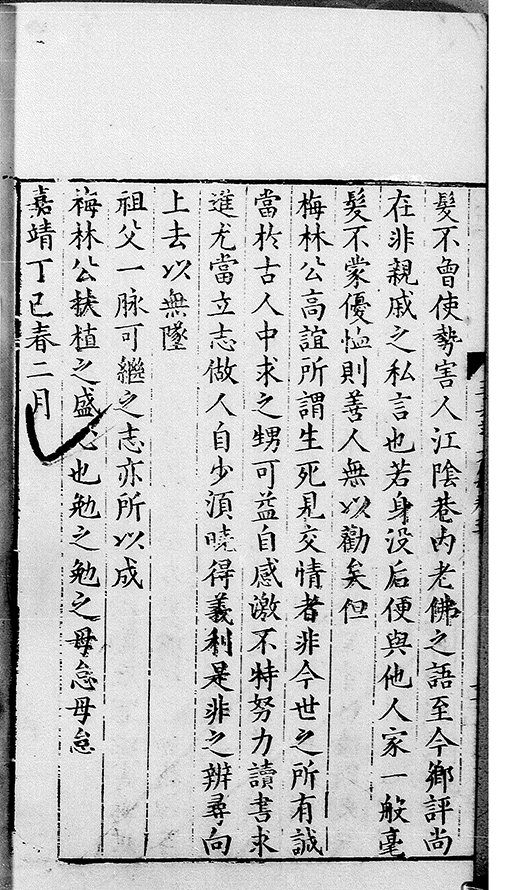 髮不曾使勢害人江陰巷内老佛之語至今鄉評尚
在非親戚之私言也若身没后便與他人家一般毫
髮不蒙優恤則善人無以勸矣但
梅林公高誼所謂生死見交情者非今世之所有誠
當於古人中求之甥可益自感激不特努力讀書求
進尤當立志做人自少須曉得義利是非之辨尋向
上去以無墜
祖父一脉可繼之志亦所以成
梅林公扶植之盛心也勉之勉之毋怠毋怠
嘉靖丁巳春二月